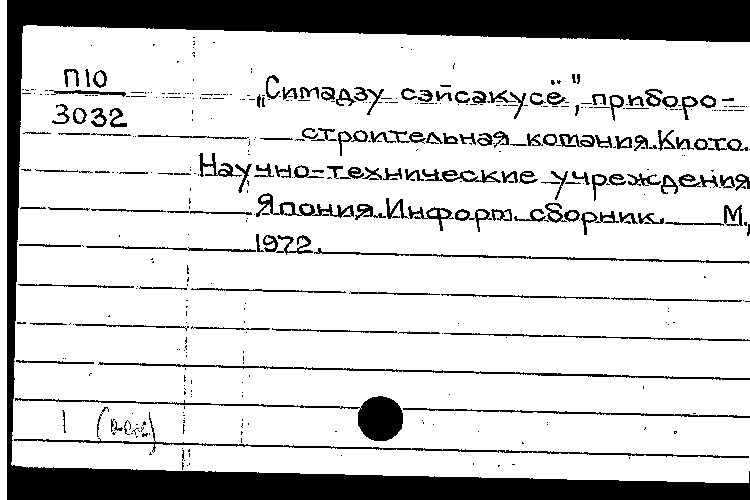 П10
3032
„Симадзу сэйсакусё", приборо-
строительная компания. Киото.
Научно-технические учреждения
Япония. Информ. сборник. М,
1972.
1